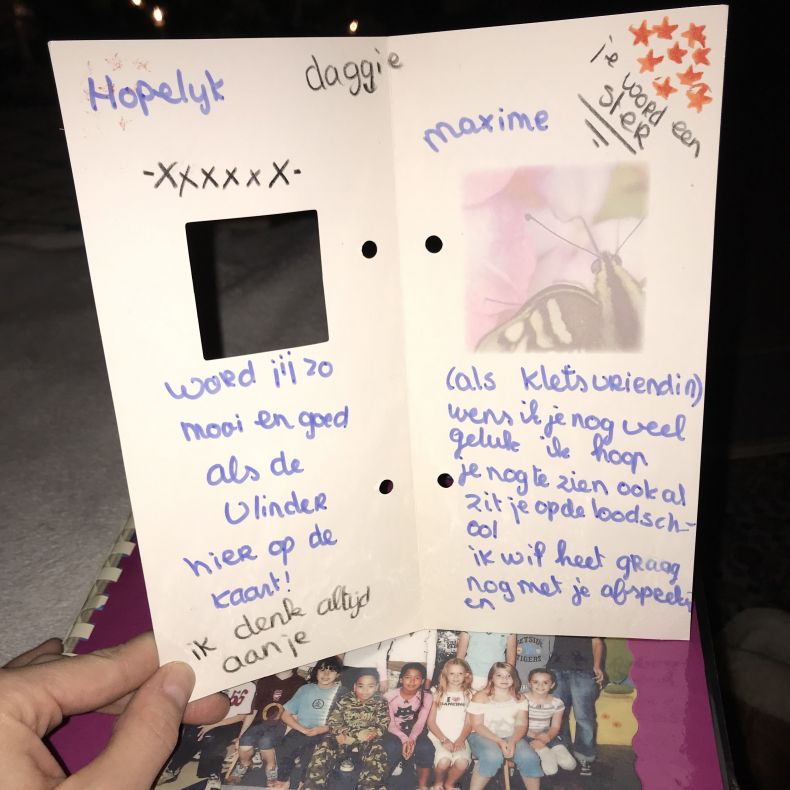 Hopelyk
-XxxxxX-
word jij zo
mooi en goed
als de
vlinder
hier op de
kaart!
ik denk altijd
aan je
daggie
je word een
STER
maxime
(als kletsvriendin)
wens ik je nog veel
geluk ik hoop
je nog te zien ook al
zit je op de loodsch-
ool
ik wil heet graag
nog met je afspreek
en
TIGERS
I
DANCING